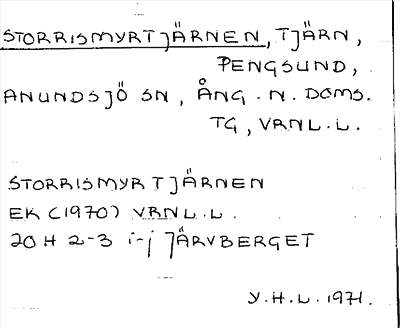 STORRISMYRTJÄRNEN, TJÄRN,
PENGSUND,
ANUNDSJÖ SN, ÅNG. N. DOMS.
TG, VRNL.L.
STORRISMYRTJÄRNEN
EK (1970) VRNL.L.
20 H 2-3 i-j JÄRVBERGET
Y.H.L. 1971.